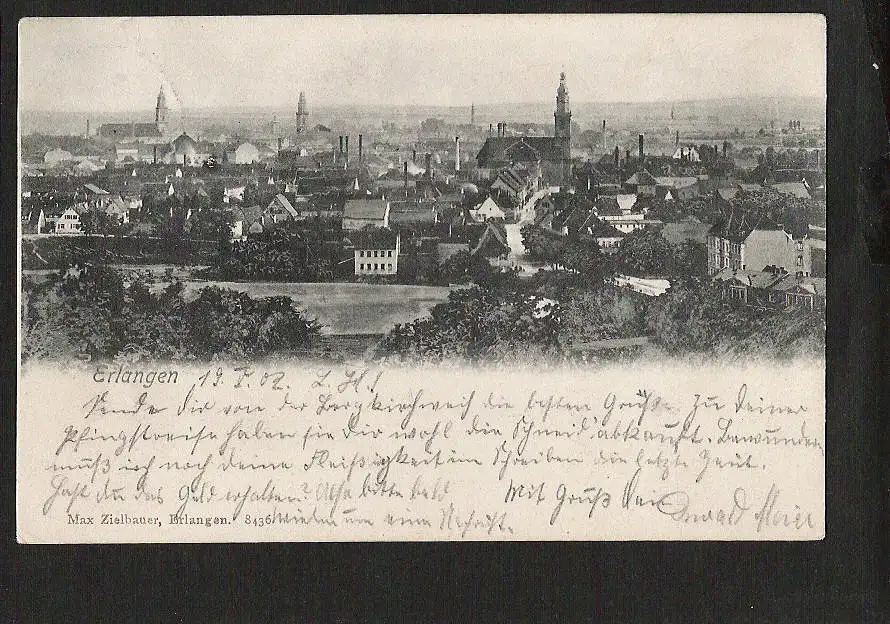 Erlangen 19. V. 02. L. H!
Sende dir von der Bergkirchweih die besten Grüße. Zu deiner
Pfingstreise haben sie dir wohl die Schneid abkauft. Bewundern
muß ich noch deine Fleißigkeit im Schreiben die letzte Zeit.
Hast du das Geld erhalten? Also bitte bald Mit Gruß dein
Max Zielbauer, Erlangen. 8436 wieder um eine Nachricht. Conrad Meier